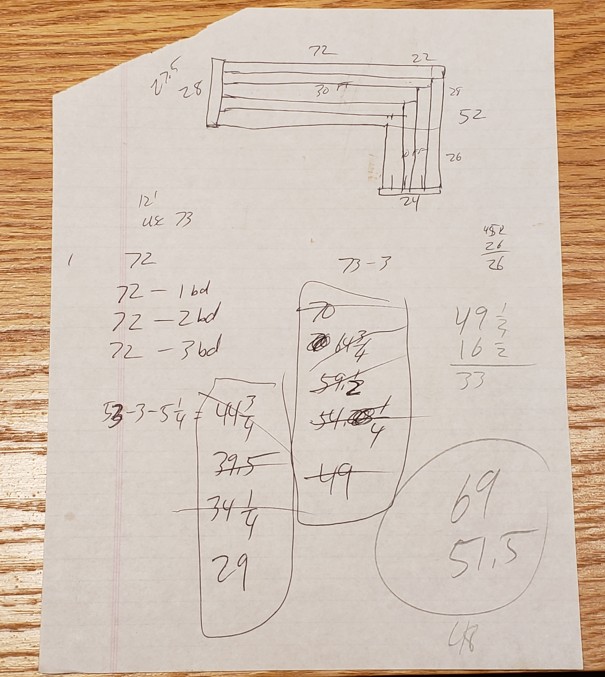 72 22
27.5
28
30
25
52
26
24
12'
use 73
1 72 73-3
72 - 1bd
72 - 2bd
72 - 3bd
26
26
70
64 3/4
59 1/2
54 1/4
49
49 1/2
16 1/2
33
53-3-5 1/4 = 44 3/4
39.5
34 1/4
29
69
51.5
48